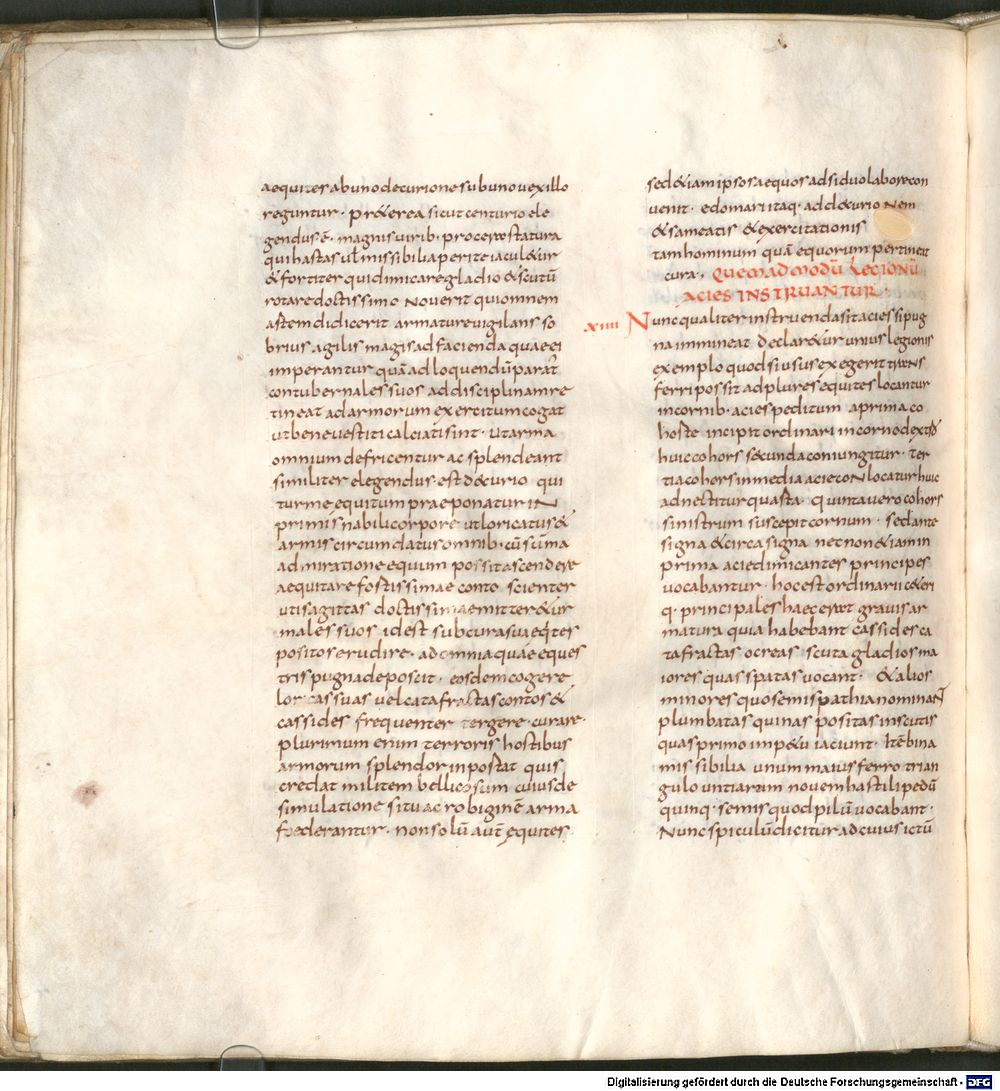 aequites ab uno decurione sub uno vexillo
reguntur · pr&erea sicut centurio ele
gendus ē · magnis virib · procerostatura
qui hastas uł missibilia perite iacul&ur
& fortiter qui dimicare gladio & scutū
rotare doctissimo noverit qui omnem
astem didicerit armature vigilans so
brius agilis magis ad facienda quae ei
imperantur quā ad loquendū parat
contubernales suos ad disciplinam re
tineat ad armorum exercitum cogat
ut bene vestiti calciati sint · ut arma
omnium defricentur ac splendeant
similiter elegendus est decurio qui
turme equitum praeponatur in
primis habili corpore ut loricatus &
armis circumdatus omnib · cū sūma
admiratione equum possit ascendere
aequitare fostissimae conto scienter
uti sagittas doctissimae mitter& ur
males suos id est sub cura sua eq̄tes
positos erudire · ad omnia quae eques
tris pugna deposcit · eosdem cogere
lor cas suas vel catafractas contos &
cassides frequenter tergere · curare ·
plurimum enim terroris hostibus
armorum splendor inpostat quis
credat militem bellicosum cuius de
simulatione situ ac robiginē arma
foederantur · non solū autē equites
sed &iam ipsos aequos adsiduo labore con
venit · edomari itaq · ad d&curionem
& sameatis & exercitationis
tam hominum quā equorum pertineat
cura · QUEMADMODŪ LEGIONŪ
ACIES INSTRUANTUR ·
xiiii Nunc qualiter instruenda sit acies si pug
na immineat declar&ur unius legionis
exemplo quod si usus exegerit trans
ferri possit ad plures equites locantur
in cornib · acies peditum a prima co
hoste incipit ordinari in corno dextro
huic cohors secunda coniungitur · ter
tia cohors in media acie conlocatur huic
adnectitur quasta · quinta vero cohors
sinistrum suscepit cornum · sed ante
signa & circa signa nec non &iam in
prima acie dimicantes principes
vocabantur · hoc est ordinarii c&eri
q · principales haec erat gravis ar
matura quia habebant cassides ca
tafractas ocreas scuta gladios ma
iores quas spatas vocant · & alios
minores quo semispathia nominant
plumbatas quinas positas in scutis
quas primo imp&u iaciunt · Itē bina
missibilia unum maius ferro trian
gulo untiarum novem hastili pedū
quinq · semis quod pilū vocabant ·
Nunc spiculū dicitur ad cuius ictū
Digitalisierung gefördert durch die Deutsche Forschungsgemeinschaft - DFG